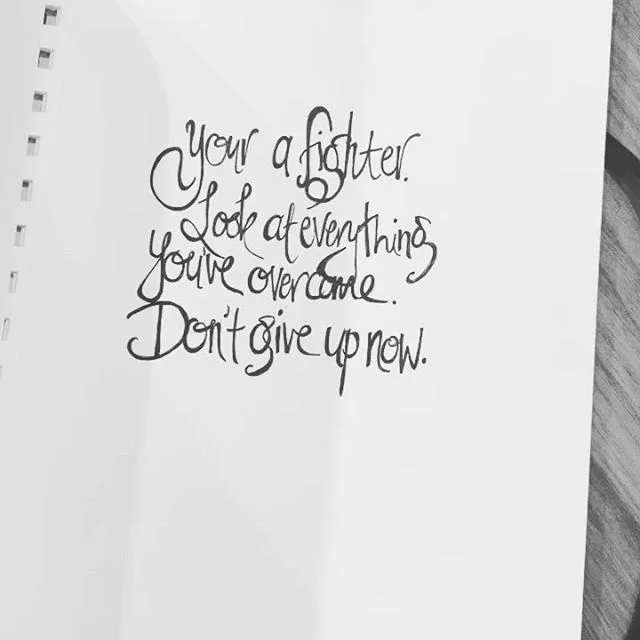 Your a fighter.
Look at everything
you've overcome.
Don't give up now.